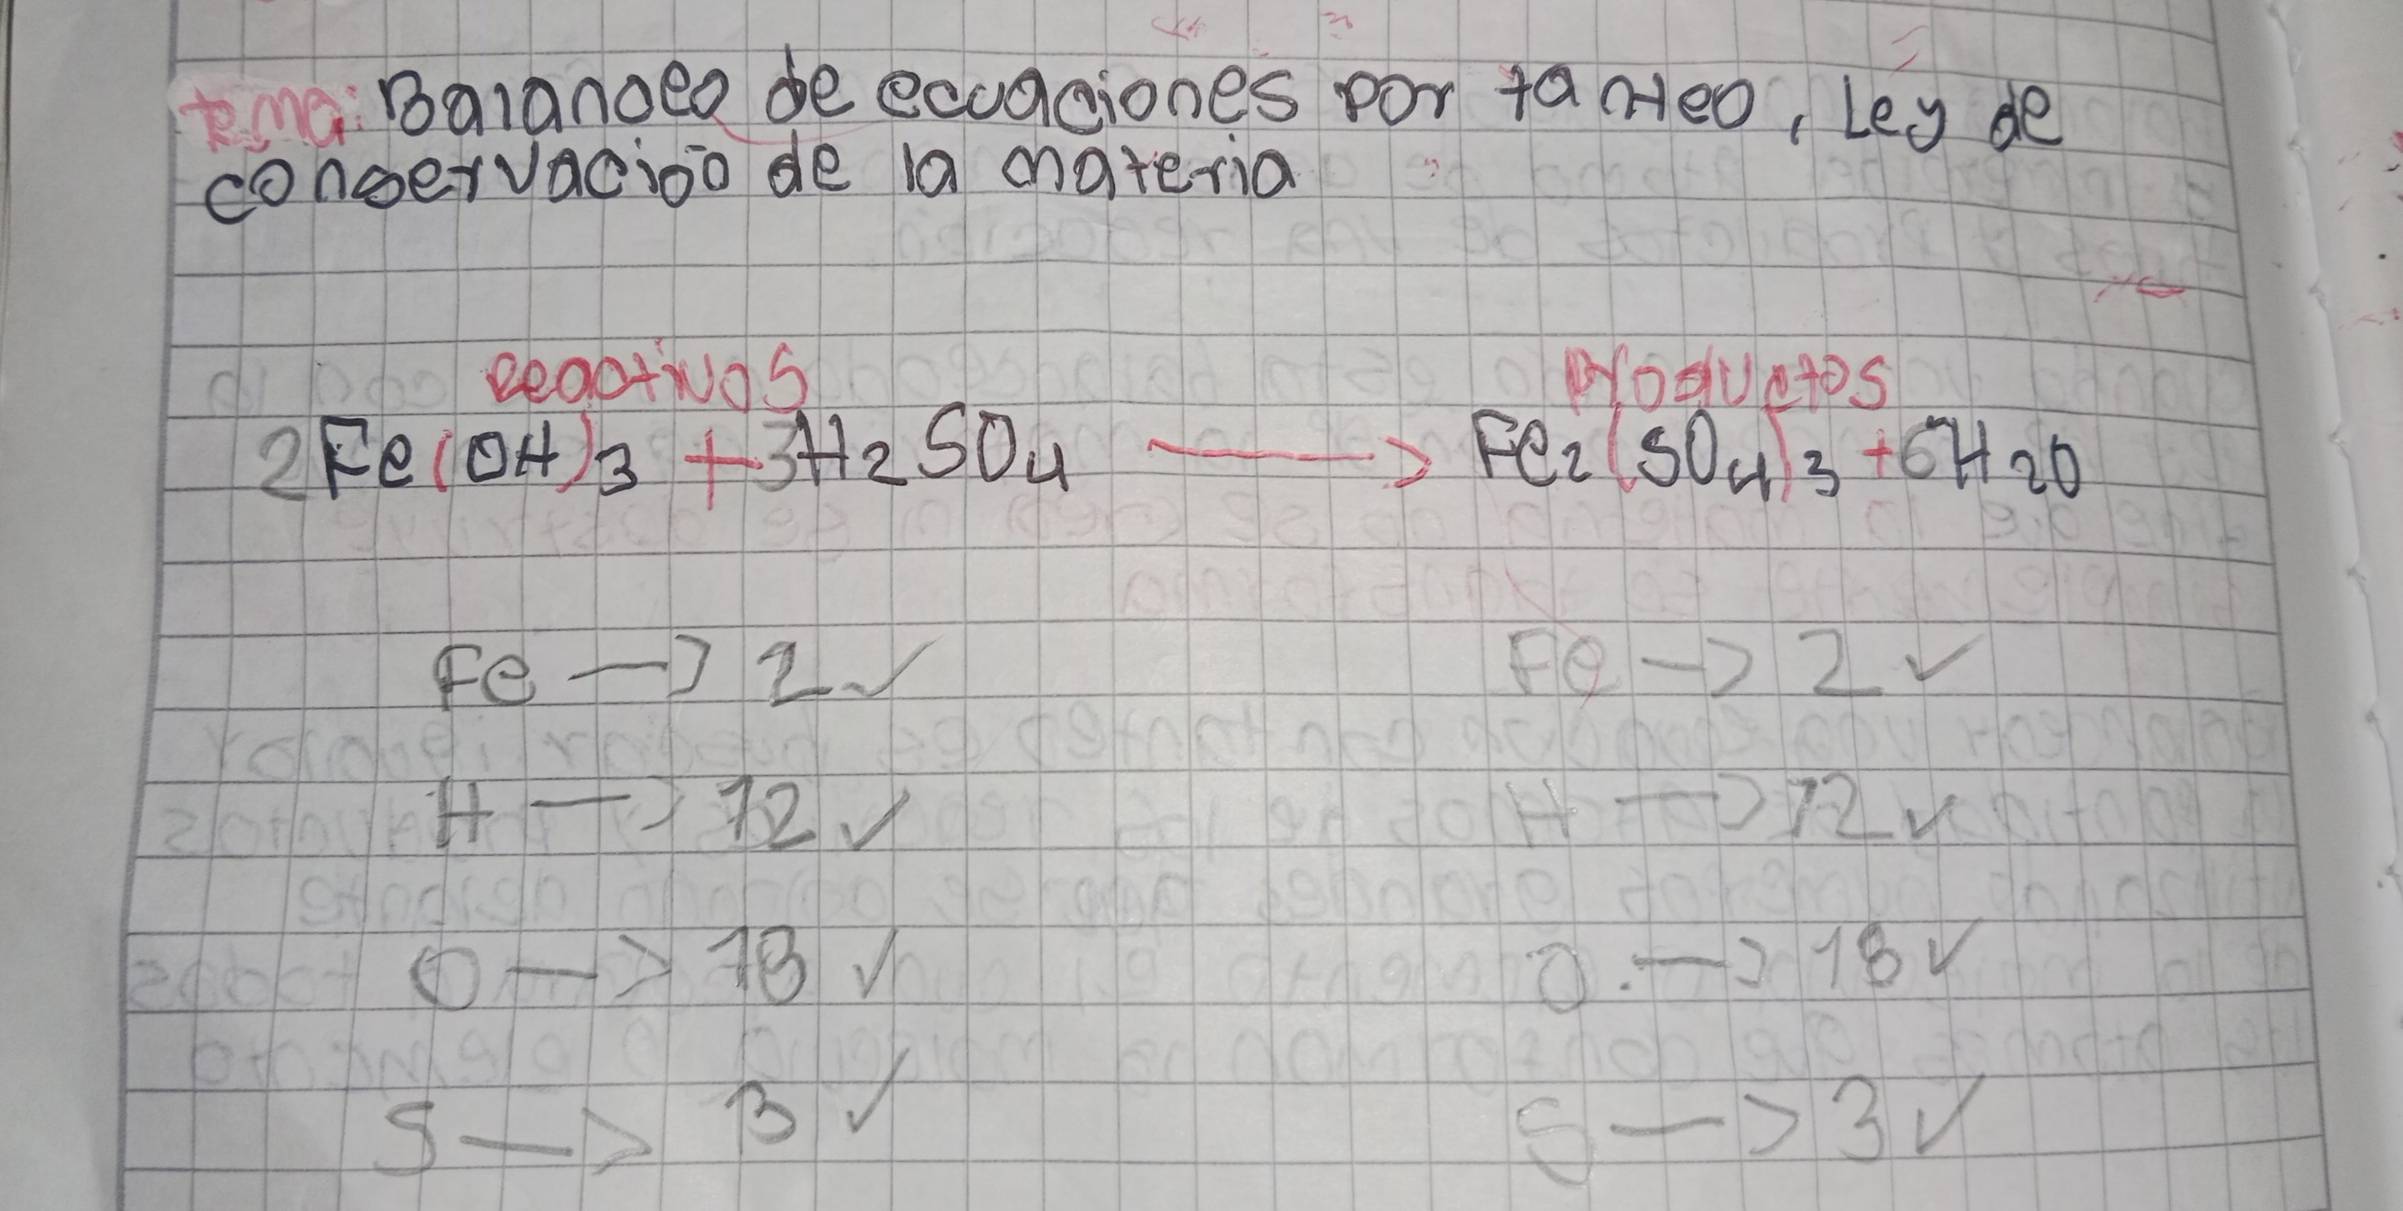 tema: Balanceo de ecuaciones por tanteo, Ley de
conservación de la materia
reactivos productos
2Fe(OH)3 + 3H2SO4 → Fe2(SO4)3 + 6H2O
Fe → 2 ✓ Fe → 2 ✓
H → 12 ✓ H → 12 ✓
O → 18 ✓ O → 18 ✓
S → 3 ✓ S → 3 ✓